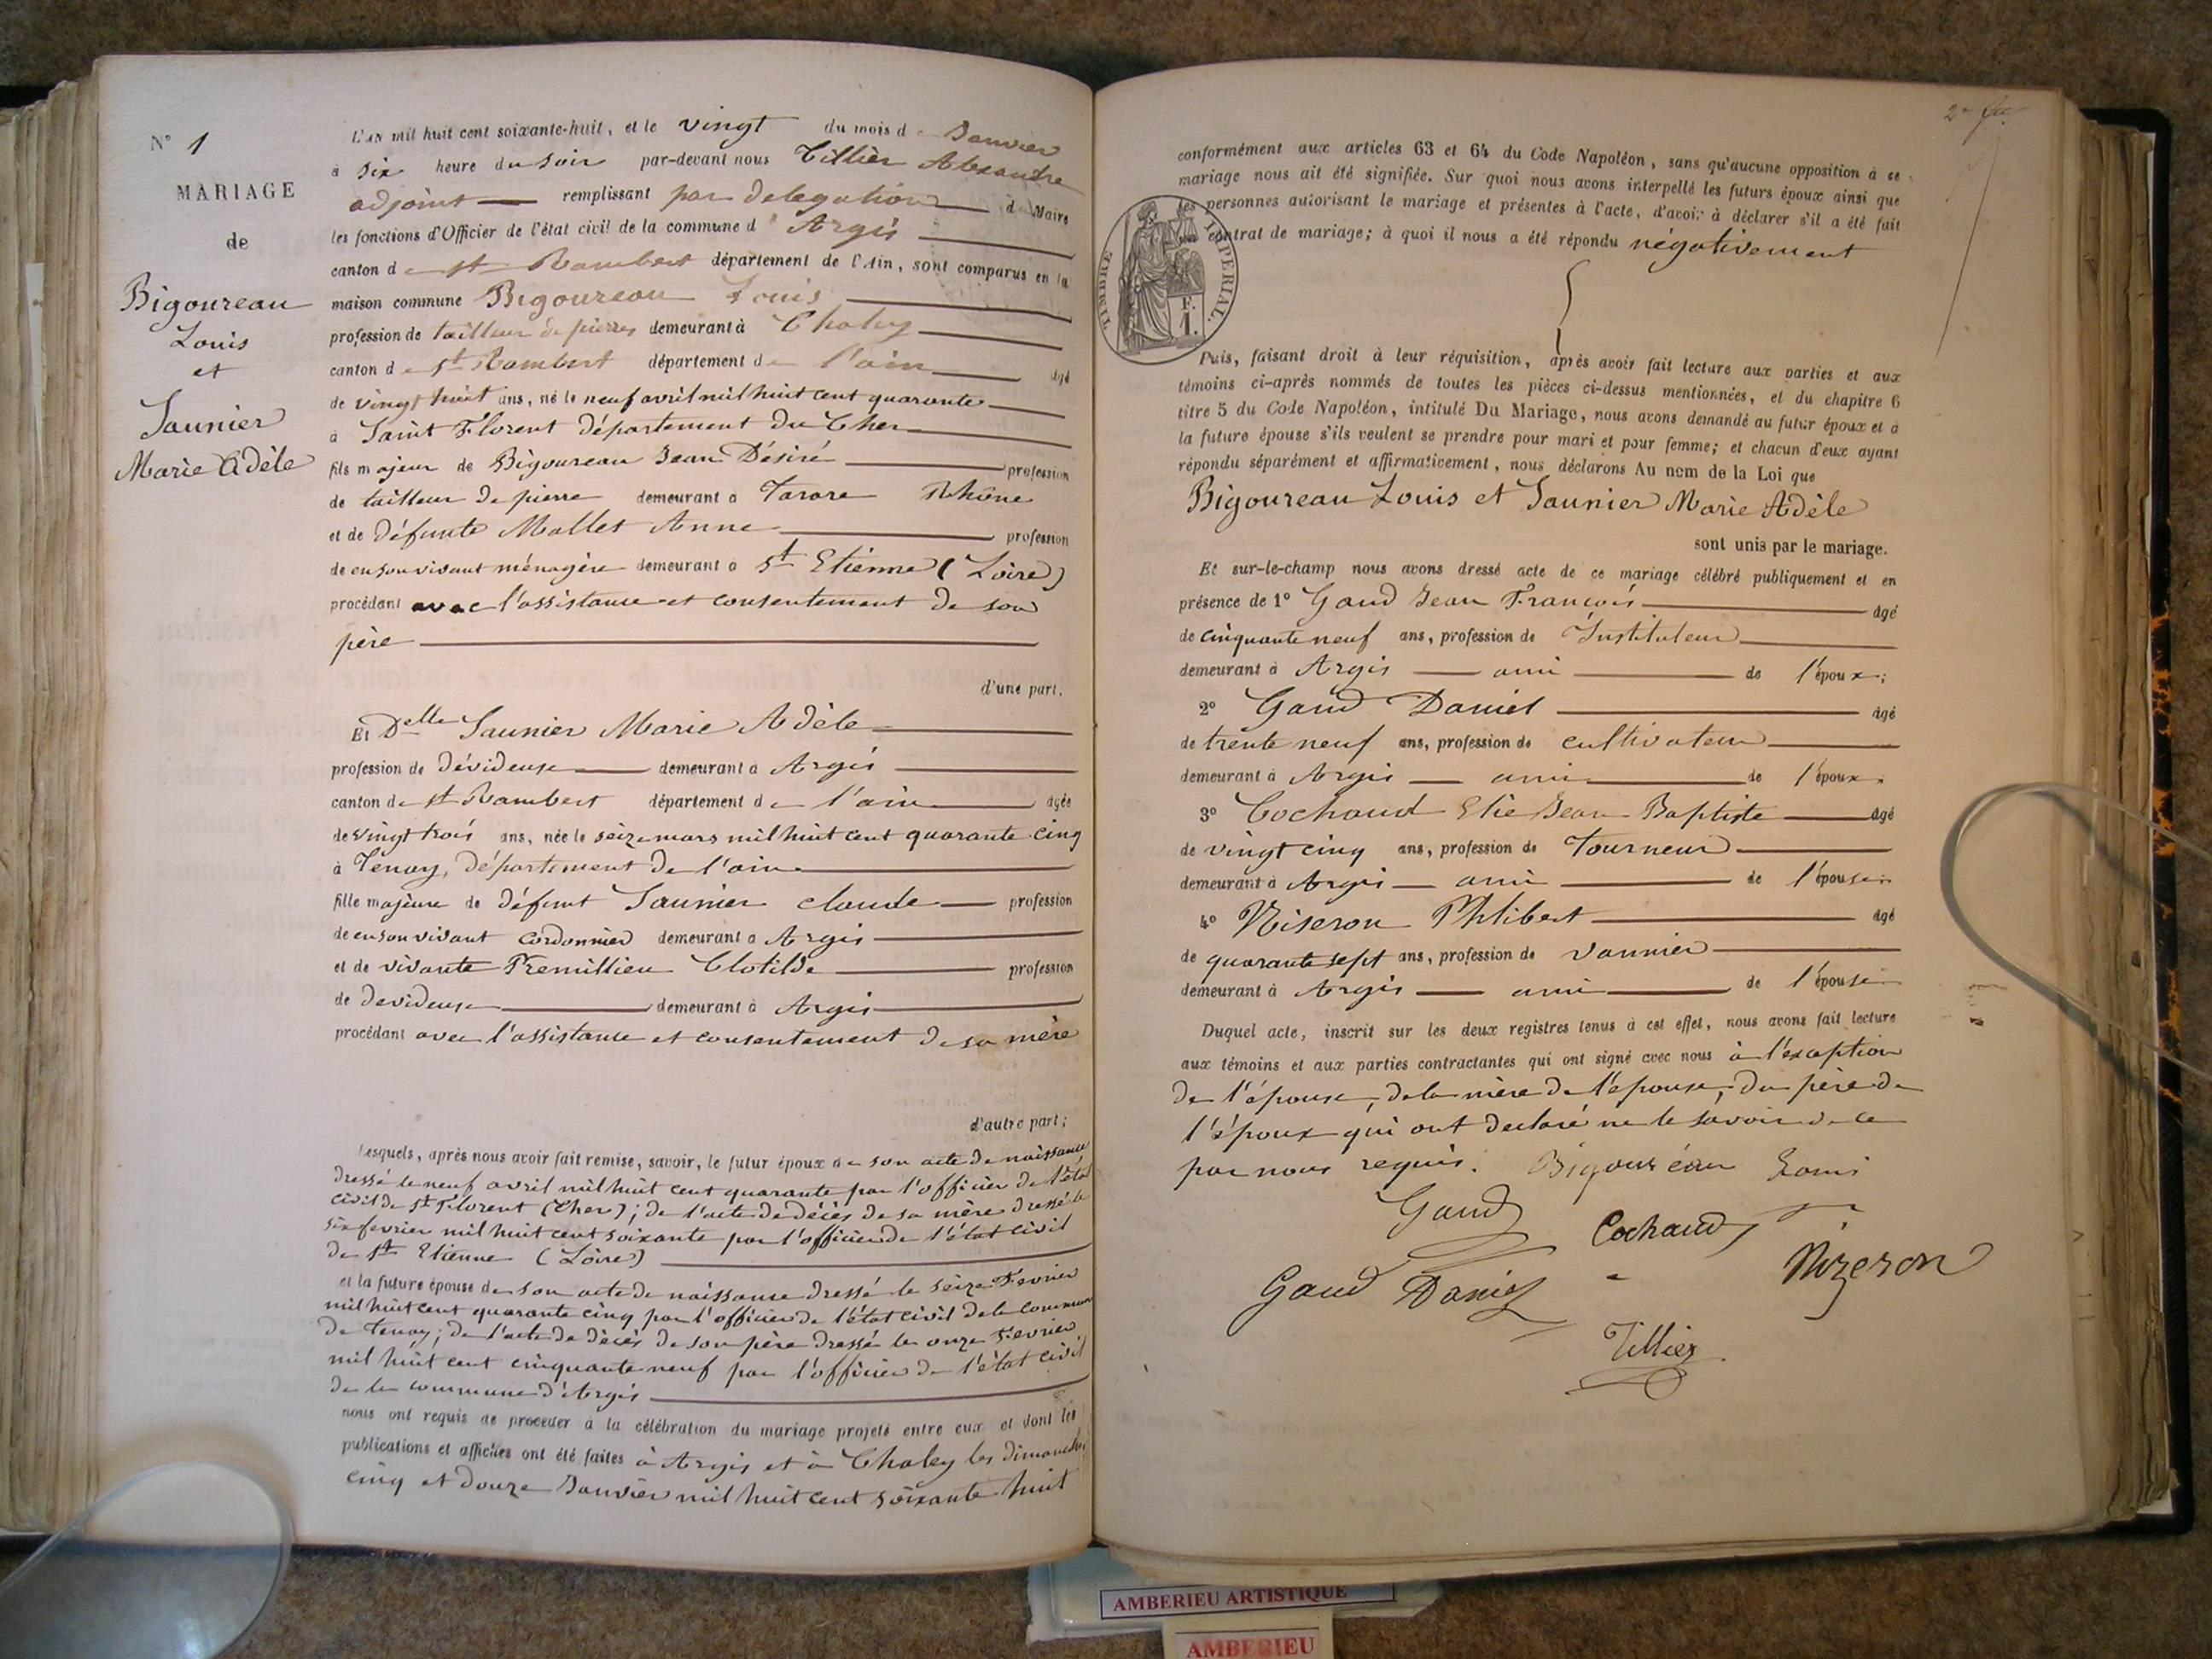 N° 1
MARIAGE
de
Bigoureau
Louis
et
Saunier
Marie Adèle
L'AN mil huit cent soixante-huit, et le vingt du mois de Janvier
à six heure du soir par-devant nous Tillier Alexandre
adjoint remplissant par delegation d Maire
les fonctions d'Officier de l'état civil de la commune d'Argis
canton de st Rambert département de l'Ain, sont comparus en la
maison commune Bigoureau Louis
profession de tailleur de pierres demeurant à Chaley
canton de St Rambert département de l'ain âgé
de vingt huit ans, né le neuf avril mil huit cent quarante
à Saint Florent département du Cher
fils majeur de Bigoureau Jean Désiré profession
de tailleur de pierre demeurant à Tarare Rhône
et de défunte Mallet Anne profession
de en son vivant ménagère demeurant à St Etienne (Loire)
procédant avec l'assistance et consentement de son
père
d'une part.
Et Delle Saunier Marie Adèle
profession de dévideuse demeurant à Argis
canton de st Rambert département de l'ain âgée
de vingt trois ans, née le seize mars mil huit cent quarante cinq
à Tenay, département de l'ain
fille majeure de défunt Saunier claude profession
de en son vivant cordonnier demeurant à Argis
et de vivante Fremillieu Clotilde profession
de devideuse demeurant à Argis
procédant avec l'assistance et consentement de sa mère
d'autre part;
Lesquels, après nous avoir fait remise, savoir, le futur époux de son acte de naissance
dressé le neuf avril mil huit cent quarante par l'officier de l'état
civil de St Florent (Cher); de l'acte de décès de sa mère dressé le
six fevrier mil huit cent soixante par l'officier de l'état civil
de St Etienne (Loire)
et la future épouse de son acte de naissance dressé le seize Fevrier
mil huit cent quarante cinq par l'officier de l'état civil de la commune
de Tenay; de l'acte de décès de son père dressé le onze Fevrier
mil huit cent cinquante neuf par l'officier de l'état civil
de la commune d'Argis
nous ont requis de procéder à la célébration du mariage projeté entre eux et dont les
publications et affiches ont été faites à Argis et à Chaley les dimanches
cinq et douze Janvier mil huit cent soixante huit
conformément aux articles 63 et 64 du Code Napoléon, sans qu'aucune opposition à ce
mariage nous ait été signifiée. Sur quoi nous avons interpellé les futurs époux ainsi que
les personnes autorisant le mariage et présentes à l'acte, d'avoir à déclarer s'il a été fait
un contrat de mariage; à quoi il nous a été répondu négativement
TIMBRE IMPERIAL.
F.
1.
Puis, faisant droit à leur réquisition, après avoir fait lecture aux parties et aux
témoins ci-après nommés de toutes les pièces ci-dessus mentionnées, et du chapitre 6
titre 5 du Code Napoléon, intitulé Du Mariage, nous avons demandé au futur époux et à
la future épouse s'ils veulent se prendre pour mari et pour femme; et chacun d'eux ayant
répondu séparément et affirmativement, nous déclarons Au nom de la Loi que
Bigoureau Louis et Saunier Marie Adèle
sont unis par le mariage.
Et sur-le-champ nous avons dressé acte de ce mariage célébré publiquement et en
présence de 1° Gaud Jean François âgé
de cinquante neuf ans, profession de Instituteur
demeurant à Argis ami de l'époux;
2° Gaud Daniel âgé
de trente neuf ans, profession de cultivateur
demeurant à Argis ami de l'époux
3° Cochaud Elie Jean Baptiste âgé
de vingt cinq ans, profession de Tourneur
demeurant à Argis ami de l'épouse
4° Niseron Philibert âgé
de quarante sept ans, profession de vannier
demeurant à Argis ami de l'épouse
Duquel acte, inscrit sur les deux registres tenus à cet effet, nous avons fait lecture
aux témoins et aux parties contractantes qui ont signé avec nous à l'exception
de l'épouse, de la mère de l'épouse, du père de
l'époux qui ont declaré ne le savoir de ce
par nous requis. Bigouréau Louis
Gaud Cochaud
Gaud Daniel Nizeron
Tillier
AMBERIEU ARTISTIQUE
AMBERIEU